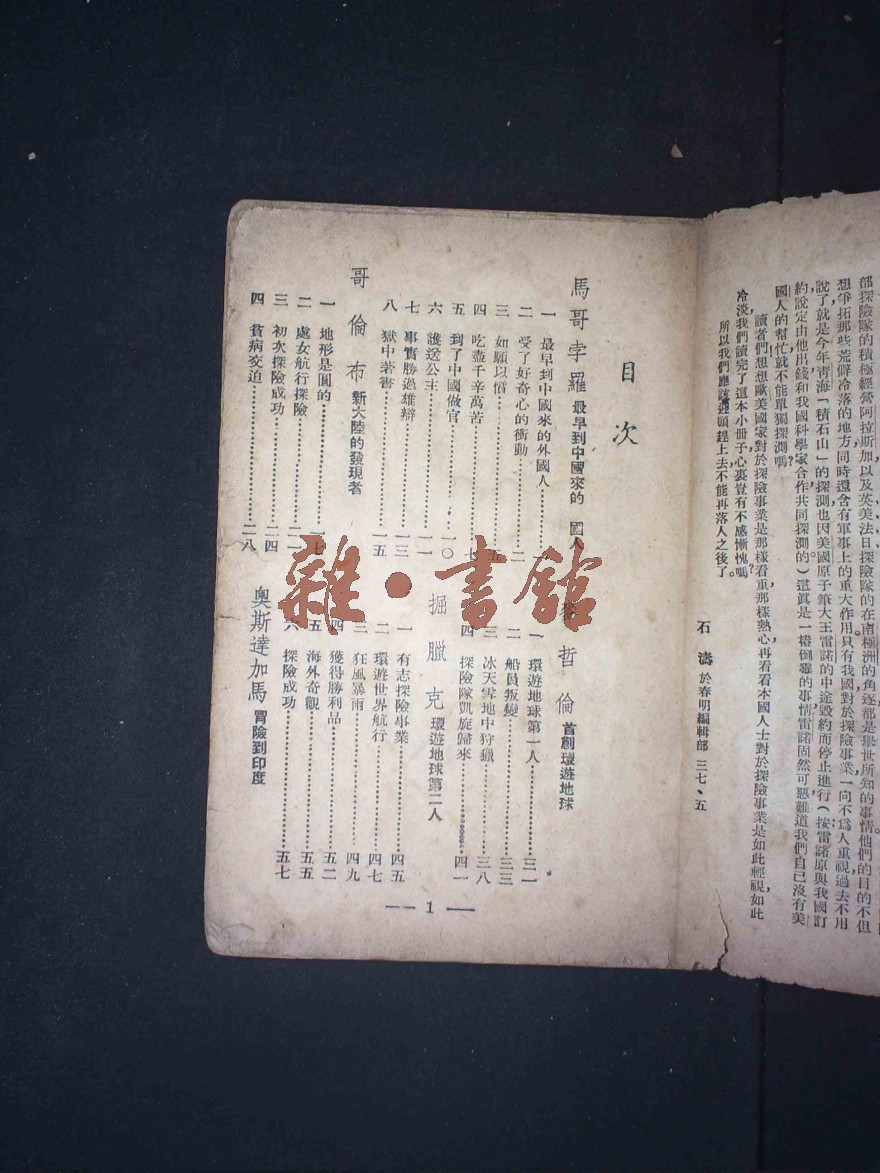 部探險隊的積極經營阿拉斯加，以及英美法日探險隊的在南極洲的角逐都是舉世所知的事情。他們的目的不但
想爭拓那些荒僻冷落的地方同時還含有軍事上的重大作用只有我國對於探險事業一向不爲人重視過去不用
說了，就是今年靑海「積石山」的探測也因美國原子筆大王雷諾的中途毀約而停止進行（按雷諾原與我國訂
約說定由他出錢和我國科學家合作共同探測的）這眞是一樁倒霉的事情雷諾固然可惡難道我們自己沒有美
國人的幫忙就不能單獨探測嗎？
讀者們想想歐美國家對於探險事業是那樣看重那樣熱心再看看本國人士對於探險事業是如此輕視如此
冷淡我們讀完了這本小冊子心裏豈有不感慚愧嗎？
所以我們應該迎頭趕上去不能再落人之後了。
石濤 於春明編輯部 三七、五
目次
馬哥孛羅 最早到中國來的 國人
一 最早到中國來的外國人
二 受了好奇心的衝動 二
三 如願以償 五
四 吃盡千辛萬苦 七
五 到了中國做官 一〇
六 護送公主 一一
七 事實勝過雄辯 一三
八 獄中著書 一五
哥倫布 新大陸的發現者
一 地形是圓的 一七
二 處女航行探險 二一
三 初次探險成功 二四
四 貧病交迫 二八
哲倫 首創環遊地球
一 環遊地球第一人 三一
二 船員叛變 三三
三 冰天雪地中狩獵 三八
四 探險隊凱旋歸來 四一
掘臘克 環遊地球第二人
一 有志探險事業 四五
二 環遊世界航行 四七
三 狂風暴雨 四九
四 獲得勝利品 五二
五 海外奇觀 五五
六 探險成功 五七
奧斯達加馬 冒險到印度
— 1 —
雜·書館